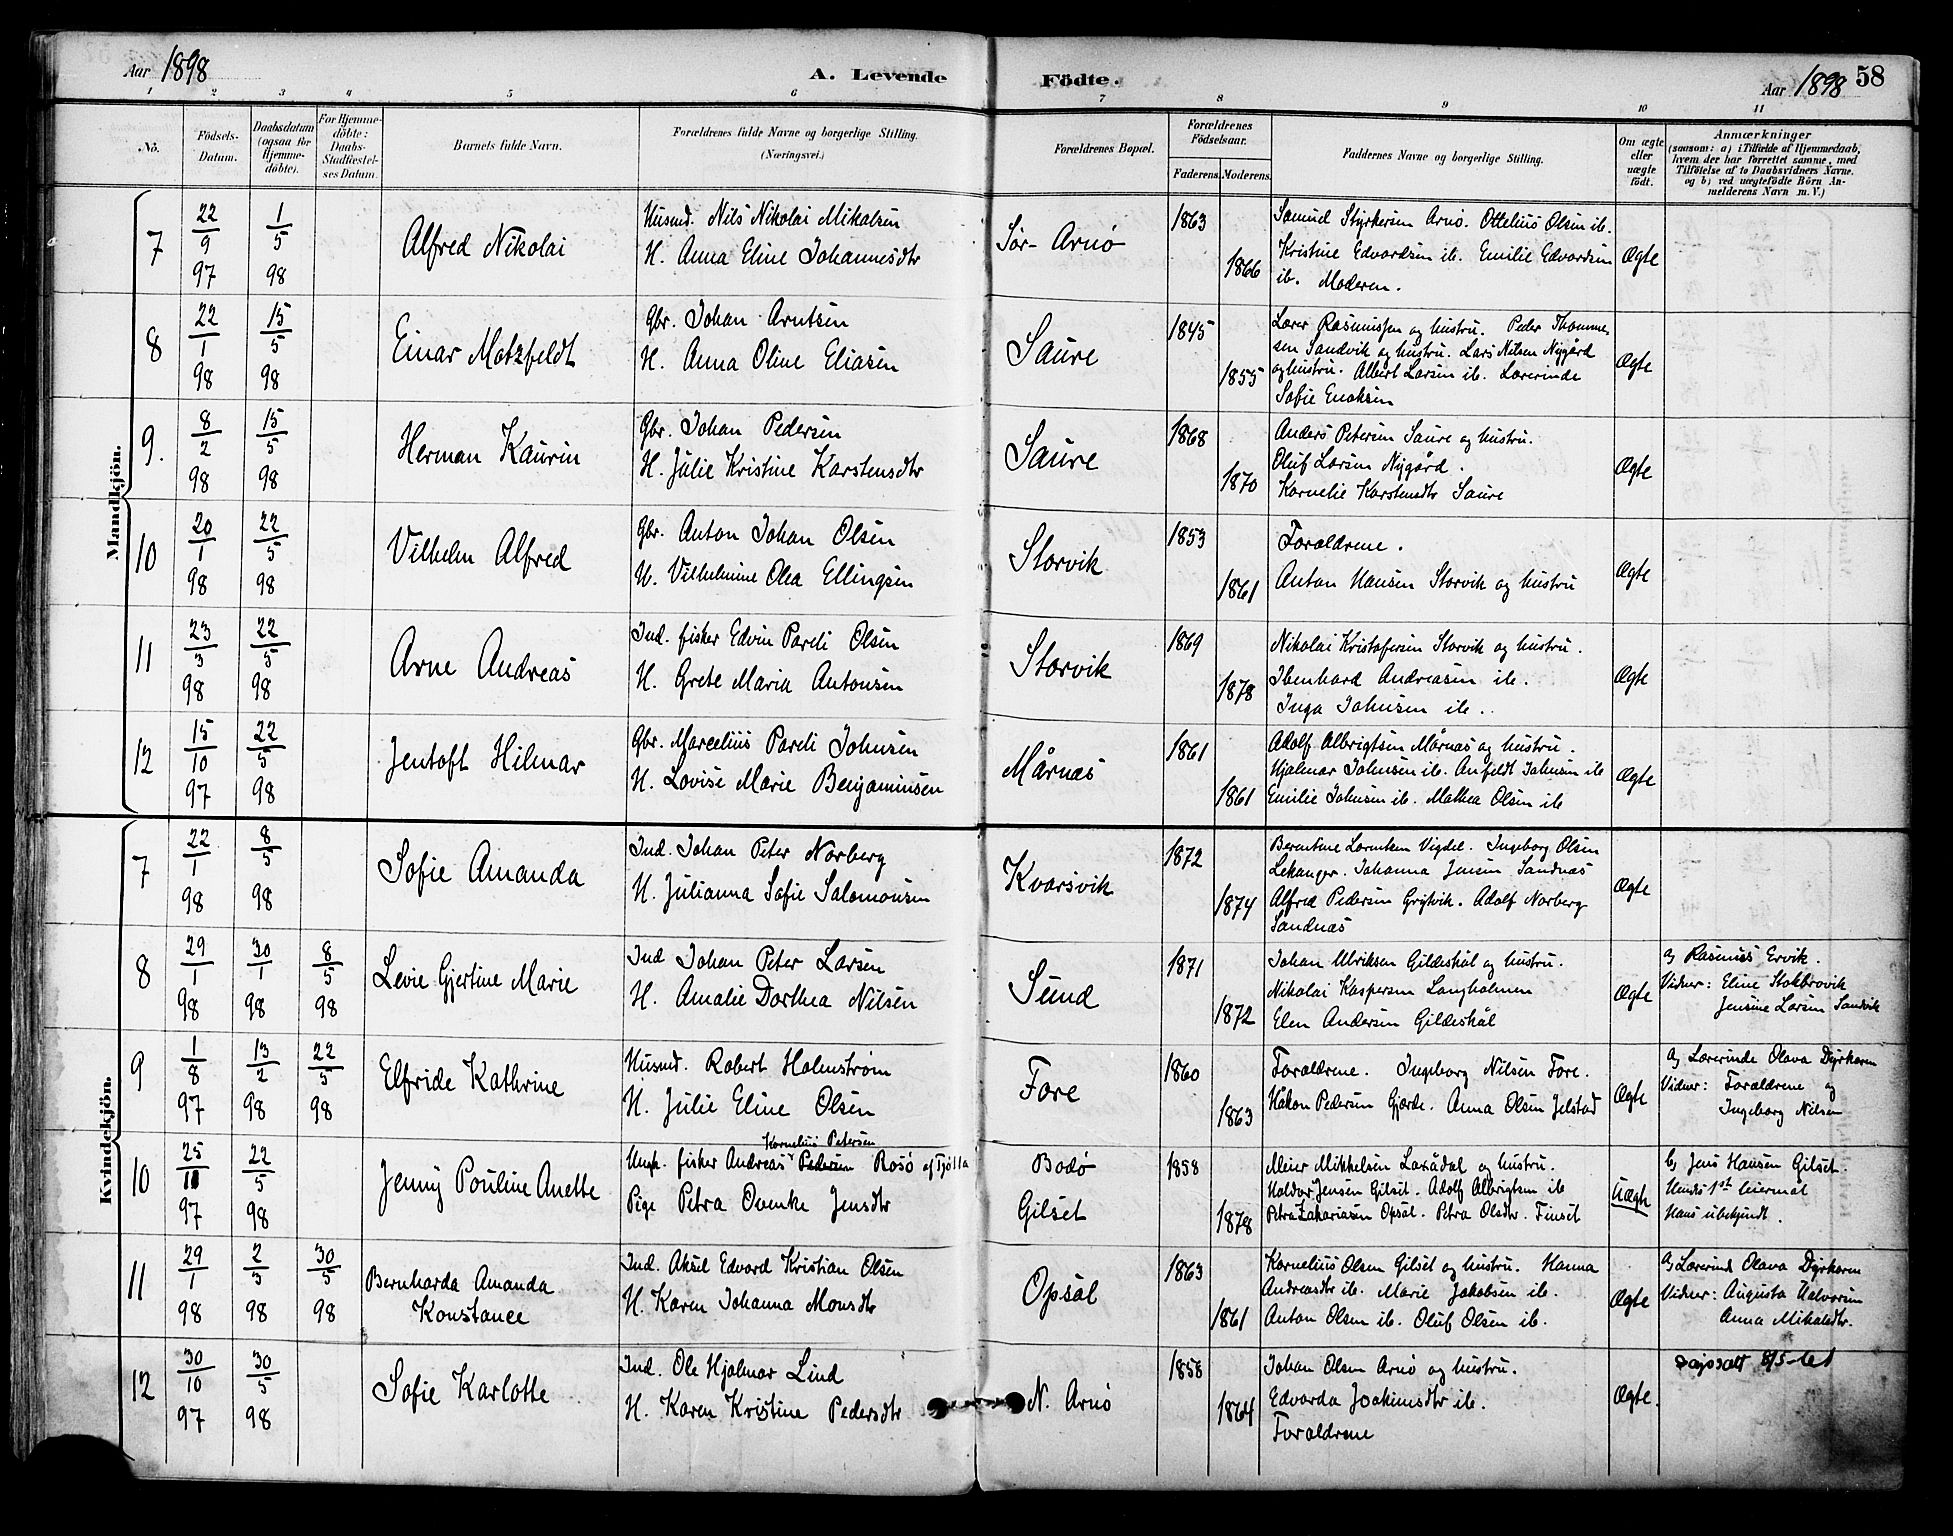 Aar 1898
A. Levende Födte.
Aar 1898 58
1 2 3 4 5 6 7 8 9 10 11
No.
Födsels-Datum.
Daabsdatum (ogsaa for Hjemmedöbte).
For Hjemmedöbte: Daabs-Stadfæstelses Datum.
Barnets fulde Navn.
Forældrenes fulde Navne og borgerlige Stilling. (Næringsvei.)
Forældrenes Bopæl.
Forældrenes Födselsaar.
Faderens. Moderens.
Faddernes Navne og borgerlige Stilling.
Om ægte eller uægte födt.
Anmærkninger
(saasom: a) i Tilfælde af Hjemmedaab,
hvem der har forrettet samme, med
Tilföielse af to Daabsvidners Navne,
og b) ved uægtefödte Börn Anmelderens Navn m. V.)
Mandkjön.
7 22/9 97 1/5 98 Alfred Nikolai
Husmd. Nils Nikolai Mikalsen
H. Anna Eline Johannesdtr
Sør-Arnø 1863 1866
Samuel Styrkersen Arnø. Ottelius Olsen ib.
Kristine Edvardsen ib. Emilie Edvardsen
ib. Moderen.
Ægte
8 22/1 98 15/5 98 Einar Motzfeldt
Gbr. Johan Arntsen
H. Anna Oline Eliasen
Saure 1845 1855
Lærer Rasmussen og hustru. Peder Thommesen Sandvik og hustru. Lars Nilsen Nygård
og hustru. Albert Larsen ib. Lærerinde
Sofie Enoksen
Ægte
9. 8/2 98 15/5 98 Herman Kaurin
Gbr. Johan Pedersen
H. Julie Kristine Karstensdtr
Saure 1868 1870
Anders Petersen Saure og hustru.
Oluf Larsen Nygård.
Kornelie Karstensdtr Saure
Ægte
10 20/1 98 22/5 98 Vilhelm Alfred
Gbr. Anton Johan Olsen
H. Vilhelmine Olea Ellingsen
Storvik 1853 1861
Forældrene.
Anton Hansen Storvik og hustru
Ægte
11 23/3 98 22/5 98 Arne Andreas
Ind. fisker Edvin Pareli Olsen
H. Grete Maria Antonsen
Storvik 1869 1878
Nikolai Kristofersen Storvik og hustru.
Ibenhard Andreasen ib.
Inga Johnsen ib.
Ægte
12 15/10 97 22/5 98 Jentoft Hilmar
Gbr. Marcelius Pareli Johnsen
H. Lovise Marie Benjaminsen
Mårnæs 1861 1861
Adolf Albrigtsen Mårnæs og hustru.
Hjalmar Johnsen ib. Anfeldt Johnsen ib
Emilie Johnsen ib. Mathea Olsen ib
Ægte
Kvindekjön.
7 22/1 98 8/5 98 Sofie Amanda
Ind. Johan Peter Norberg
H. Julianna Sofie Salomonsen
Kvarsvik 1872 1874
Berentine Lorentsen Vigdel. Ingeborg Olsen
Lekanger. Johanna Jensen Sandnæs
Alfred Pedersen Grytvik. Adolf Norberg
Sandnæs
Ægte
8 29/1 98 30/1 98 8/5 98 Levie Gjertine Marie
Ind Johan Peter Larsen
H. Amalie Dorthea Nilsen
Sund 1871 1872
Johan Ulriksen Gildeskål og hustru.
Nikolai Kaspersen Langholmen
Elen Andersen Gildeskål
Ægte
a) Rasmus Ervik.
Vidner: Eline Stokbrovik
Jensine Larsen Sandvik
9 1/8 97 13/2 98 22/5 98 Elfride Kathrine
Husmd. Robert Holmstrøm
H. Julie Eline Olsen
Fore 1860 1863
Forældrene. Ingeborg Nilsen Fore.
Håkon Pedersen Gjerde. Anna Olsen Jelstad
Ægte
a) Lærerinde Olava Dyrkoren
Vidner: Forældrene og
Ingeborg Nilsen
10 25/11 97 22/5 98 Jenny Pouline Anette
Kornelius Petersen
Ungk. fisker Andreas Pedersen Rosø af Fjölla
Pige Petra Ovenke Jensdtr
Bodø
Gilset
1858 1878
Meier Mikkelsen Laxådal og hustru.
Haldor Jensen Gilset. Adolf Albrigtsen ib
Petra Zakariasen Opsal. Petra Olsdtr. Finset
Uægte
b) Jens Hansen Gilset.
Hendes 1st leiermål
Hans ubekjendt.
11 29/1 98 2/3 98 30/5 98 Bernharda Amanda
Konstance
Ind. Aksel Edvard Kristian Olsen
H. Karen Johanna Monsdtr
Opsal 1863 1861
Kornelius Olsen Gilset og hustru. Hanna
Andreasdtr ib. Marie Jakobsen ib.
Anton Olsen ib. Oluf Olsen ib.
Ægte
a) Lærerind Olava Dyrkoren
Vidner: Augusta Halvorsen
Anna Mikalsdtr.
12 30/10 97 30/5 98 Sofie Karlotte
Ind. Ole Hjalmar Lind
H. Karen Kristine Pedersdtr
N. Arnø 1858 1864
Johan Olsen Arnø og hustru.
Edvarda Joakimsdtr ib.
Forældrene
Ægte.